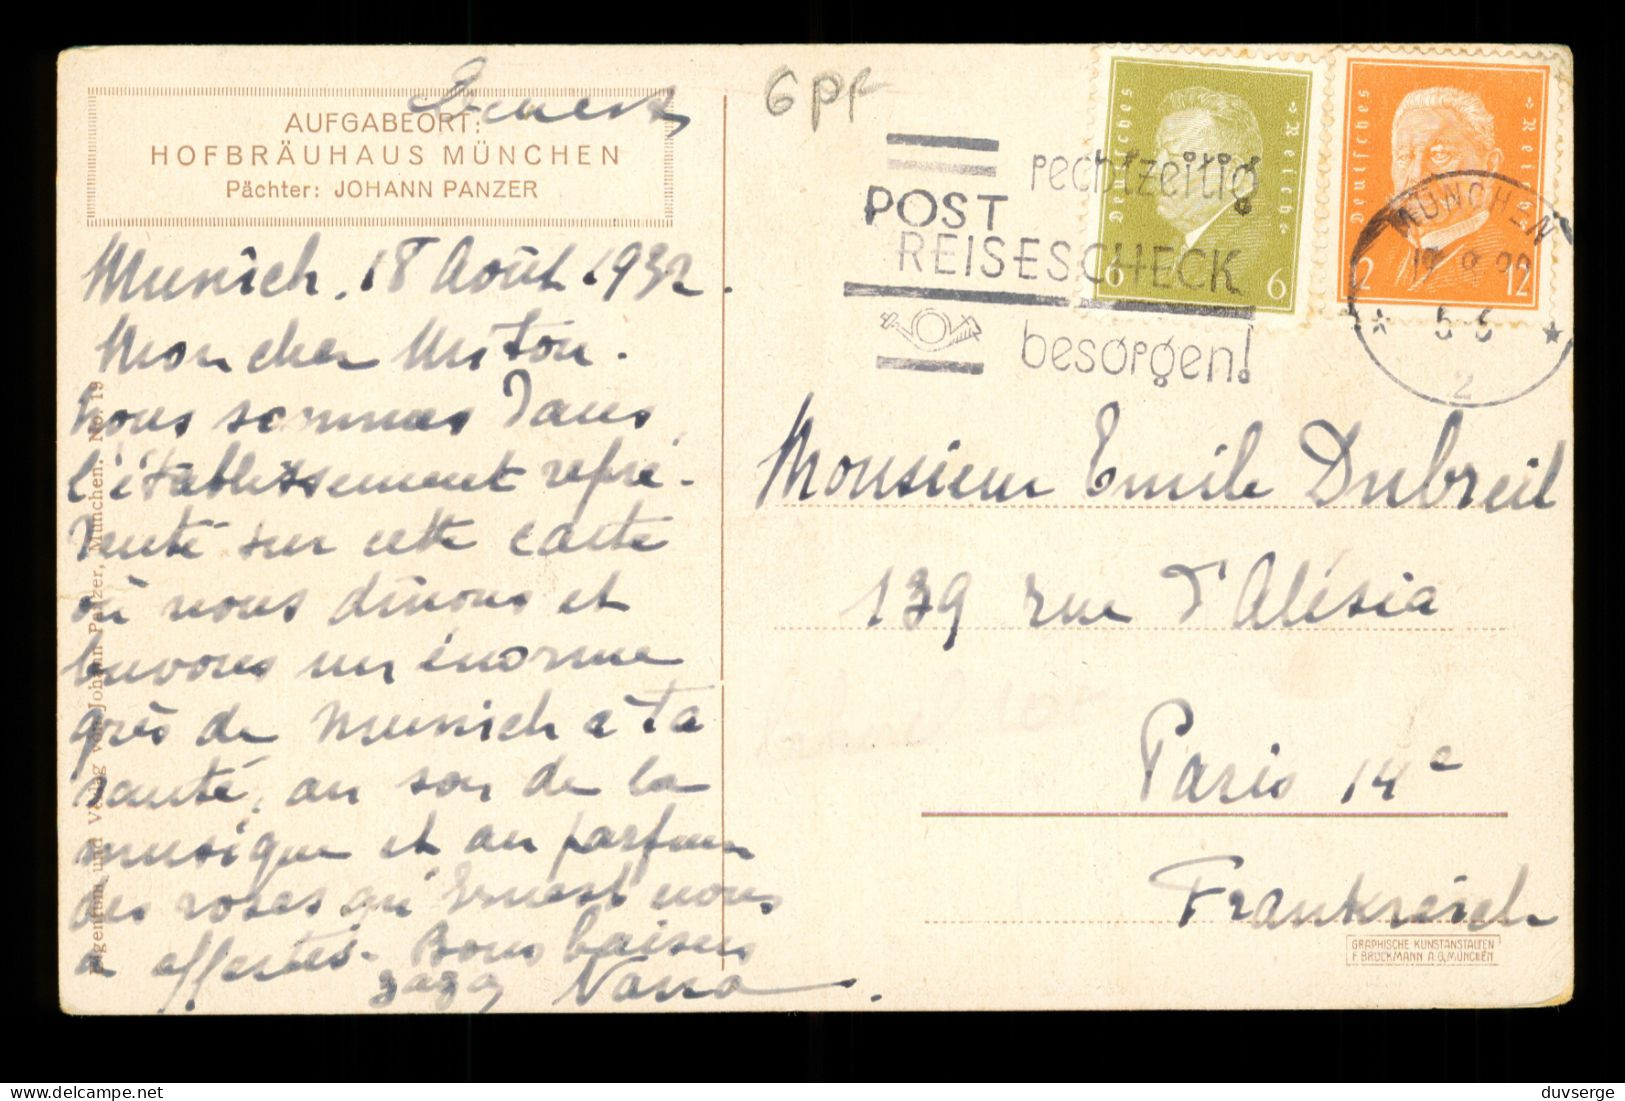 Ernest
AUFGABEORT:
HOFBRÄUHAUS MÜNCHEN
Pächter: JOHANN PANZER
Munich, 18 Août 1932.
Mon cher
Nous sommes dans
l'établissement repré-
senté sur cette carte
où nous dînons et
buvons un énorme
grès de Munich à ta
santé, au son de la
musique et au parfum
des roses qu'Ernest nous
a offertes. Bons baisers
zaza Nassa
Eigentum und Verlag von Johann Panzer, München. No. 19
6 pf
rechtzeitig
POST
REISESCHECK
besorgen!
Deutsches Reich
6 6
Deutsches Reich
12 12
MÜNCHEN
2
Monsieur Emile Dubreil
139 rue d'Alésia
Paris 14e
Frankreich
GRAPHISCHE KUNSTANSTALTEN
F. BRUCKMANN A.G. MÜNCHEN
duvserge